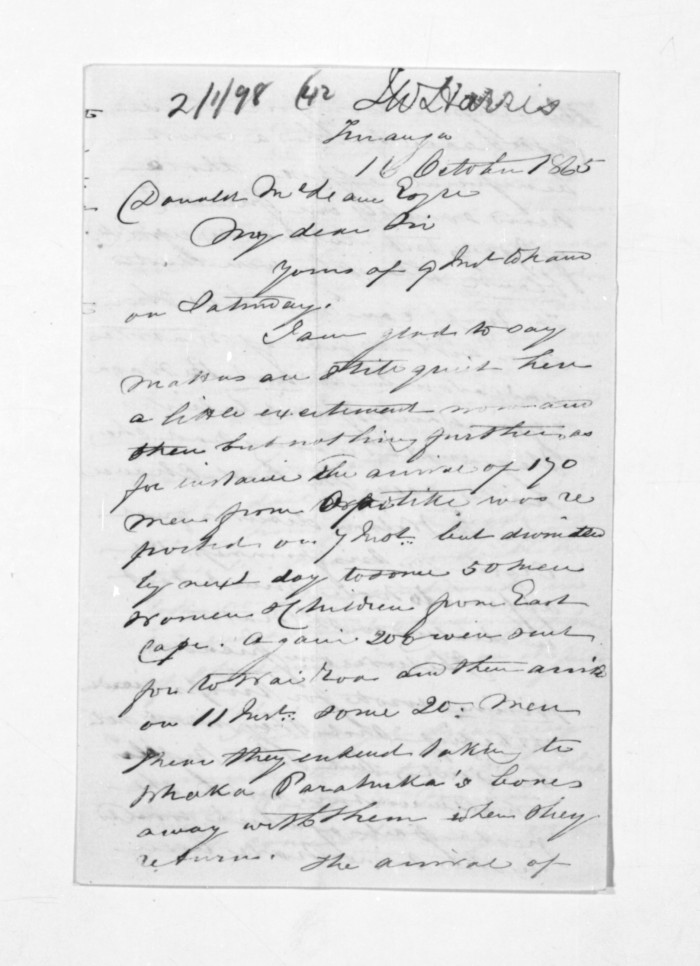 2/1/98 (42 J W Harris
Turanga
16 October 1865
Donald McLean Esqre
My dear Sir
Yours of 9 Inst to hand
on Saturday.
I am glad to say
matters are still quiet here
a little excitement now and
then but nothing further, as
for instance the arrival of 170
men from Opotiki was re
ported on 7 Inst. but dwindled
by next day to some 50 men
women & Children from East
Cape. Again 200 were sent
for to Wairoa and there arrive
on 11 Inst. some 20 men
I hear they intend taking te
Whaka Paratuka's bones
away with them when they
return. The arrival of